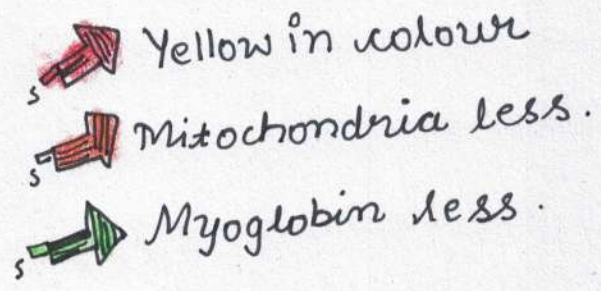 Yellow in colour
Mitochondria less.
Myoglobin less.